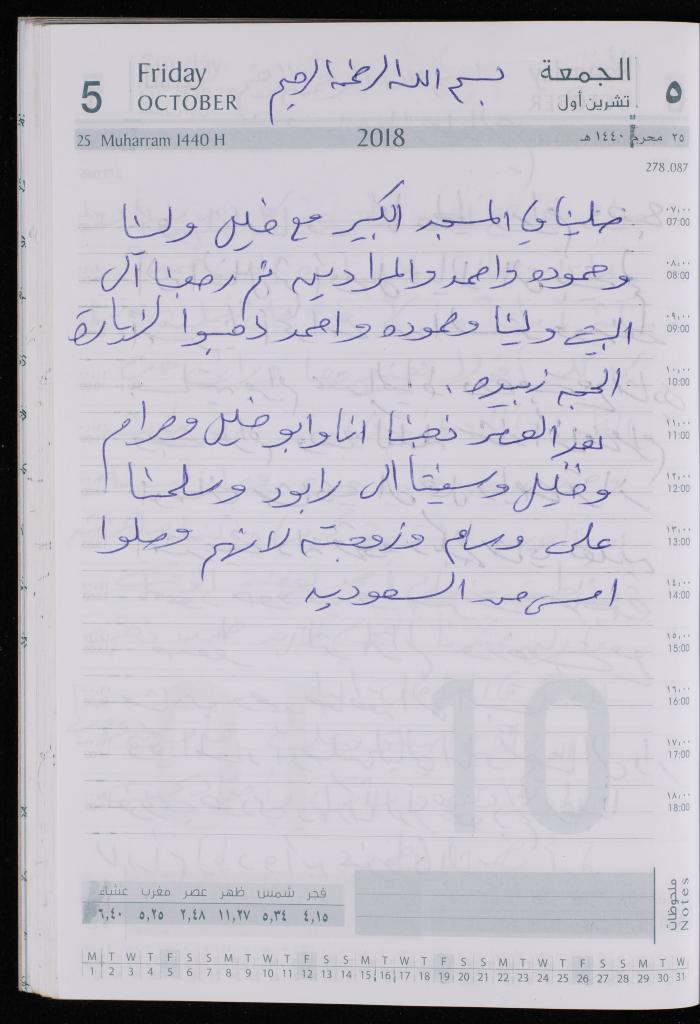 5 Friday OCTOBER بسم الله الرحمن الرحيم الجمعة تشرين أول ٥
25 Muharram 1440 H 2018 ٢٥ محرم ١٤٤٠ هـ
278.087
صلينا في المسجد الكبير مع خليل ولينا
وحموده واحمد والمرادين ثم رجعنا الى
البيت ولينا وحموده واحمد ذهبوا لزيارة
الحجه زبيده.
بعد العصر ذهبنا انا وابو خليل ومرام
وخليل وسفيتا الى رابود وسلمنا
على وسام وزوجته لانهم وصلوا
امس من السعوديه
٠٧,٠٠ 07:00
٠٨,٠٠ 08:00
٠٩,٠٠ 09:00
١٠,٠٠ 10:00
١١,٠٠ 11:00
١٢,٠٠ 12:00
١٣,٠٠ 13:00
١٤,٠٠ 14:00
١٥,٠٠ 15:00
١٦,٠٠ 16:00
١٧,٠٠ 17:00
١٨,٠٠ 18:00
10
فجر شمس ظهر عصر مغرب عشاء
٤,١٥ ٥,٣٤ ١١,٢٧ ٢,٤٨ ٥,٢٥ ٦,٤٠
ملحوظات
Notes
M T W T F S S M T W T F S S M T W T F S S M T W T F S S M T W
1 2 3 4 5 6 7 8 9 10 11 12 13 14 15 16 17 18 19 20 21 22 23 24 25 26 27 28 29 30 31